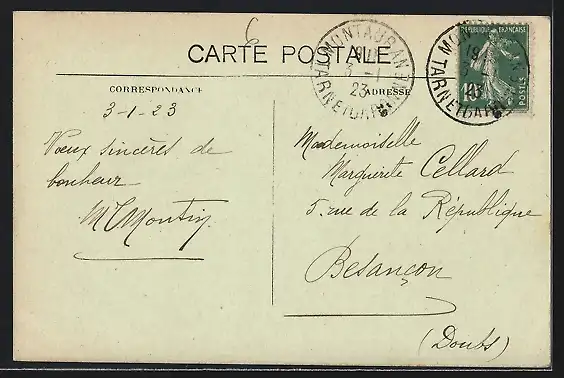 6
CARTE POSTALE
CORRESPONDANCE
ADRESSE
MONTAUBAN
3-1
23
TARN-ET-GARONNE
MONT
3-1
23
TARN-ET-GAR
REPUBLIQUE FRANÇAISE
POSTES
10
3-1-23
Vœux sincères de
bonheur
Mademoiselle
Marguerite Cellard
5. rue de la République
Besançon
(Doubs)